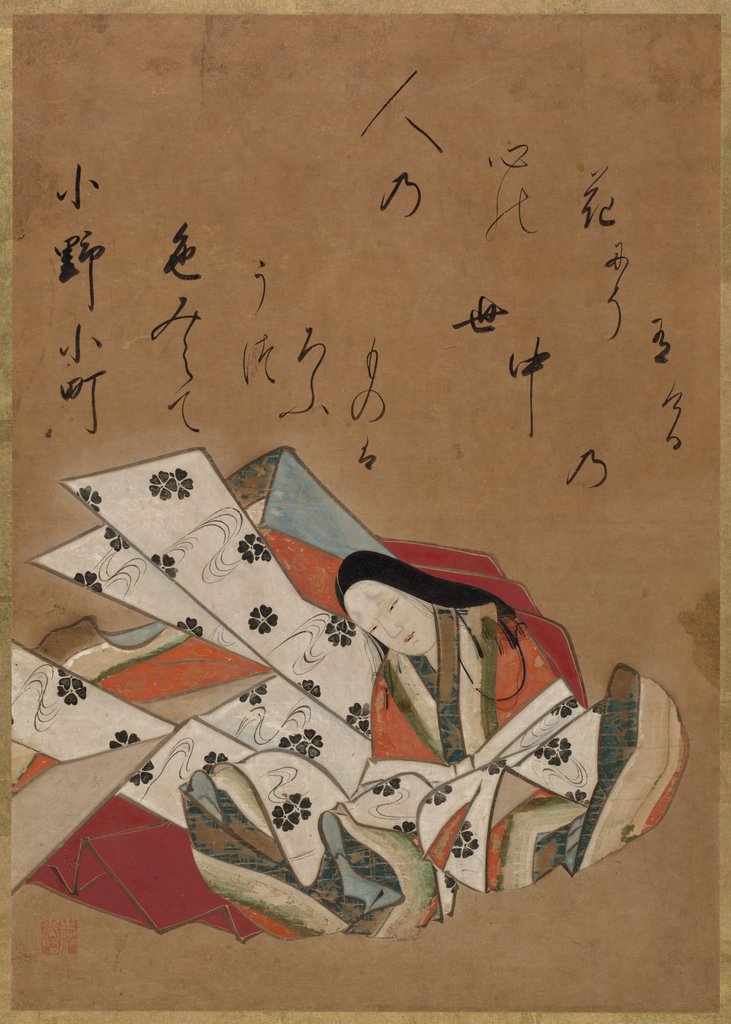 小野小町
色みえて
うつ
ろふ
ものは
世中乃
人乃
心能
花にそ
有ける